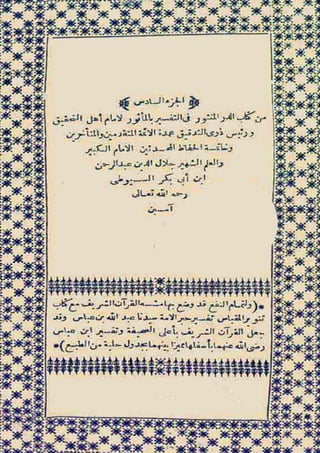 الجزء السادس
من كتاب الدر المنثور فى التفسير بالمأثور لامام أهل التحقيق
ورئيس ذوى التدقيق عمدة الائمة المتقدمين والمتأخرين
وخاتمة الحفاظ المحدثين الامام الكبير
والعلم الشهير جلال الدين عبدالرحمن
ابن أبى بكر السيوطى
رحمه الله تعالى
آمين
(ولتمام النفع قد وضع بهامشه القرآن الشريف مع كتاب
تنوير المقباس تفسير حبر الامة سيدنا عبد الله بن عباس وقد
جعل القرآن الشريف بأعلى الصحيفة وتفسير ابن عباس
رضى الله عنهما بأسفلها مميزا بينهما بجدول حلية من الطبع)